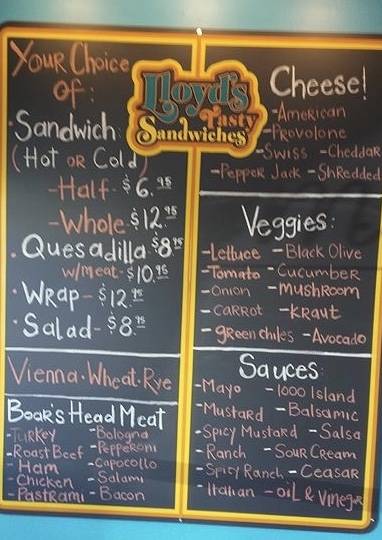 Lloyd's
Tasty
Sandwiches
Your Choice
Of:
· Sandwich
(Hot or Cold)
- Half - $6.95
- Whole - $12.95
· Quesadilla $8.95
w/meat - $10.95
· Wrap - $12.95
· Salad - $8.95
Vienna · Wheat · Rye
Boar's Head Meat
- Turkey - Bologna
- Roast Beef - Pepperoni
- Ham - Capocollo
- Chicken - Salami
- Pastrami - Bacon
Cheese!
- American
- Provolone
- Swiss - Cheddar
- Pepper Jack - Shredded
Veggies:
- Lettuce - Black Olive
- Tomato - Cucumber
- Onion - Mushroom
- Carrot - Kraut
- green chiles - Avocado
Sauces
- Mayo - 1000 Island
- Mustard - Balsamic
- Spicy Mustard - Salsa
- Ranch - Sour Cream
- Spicy Ranch - Ceasar
- Italian - Oil & Vinegar